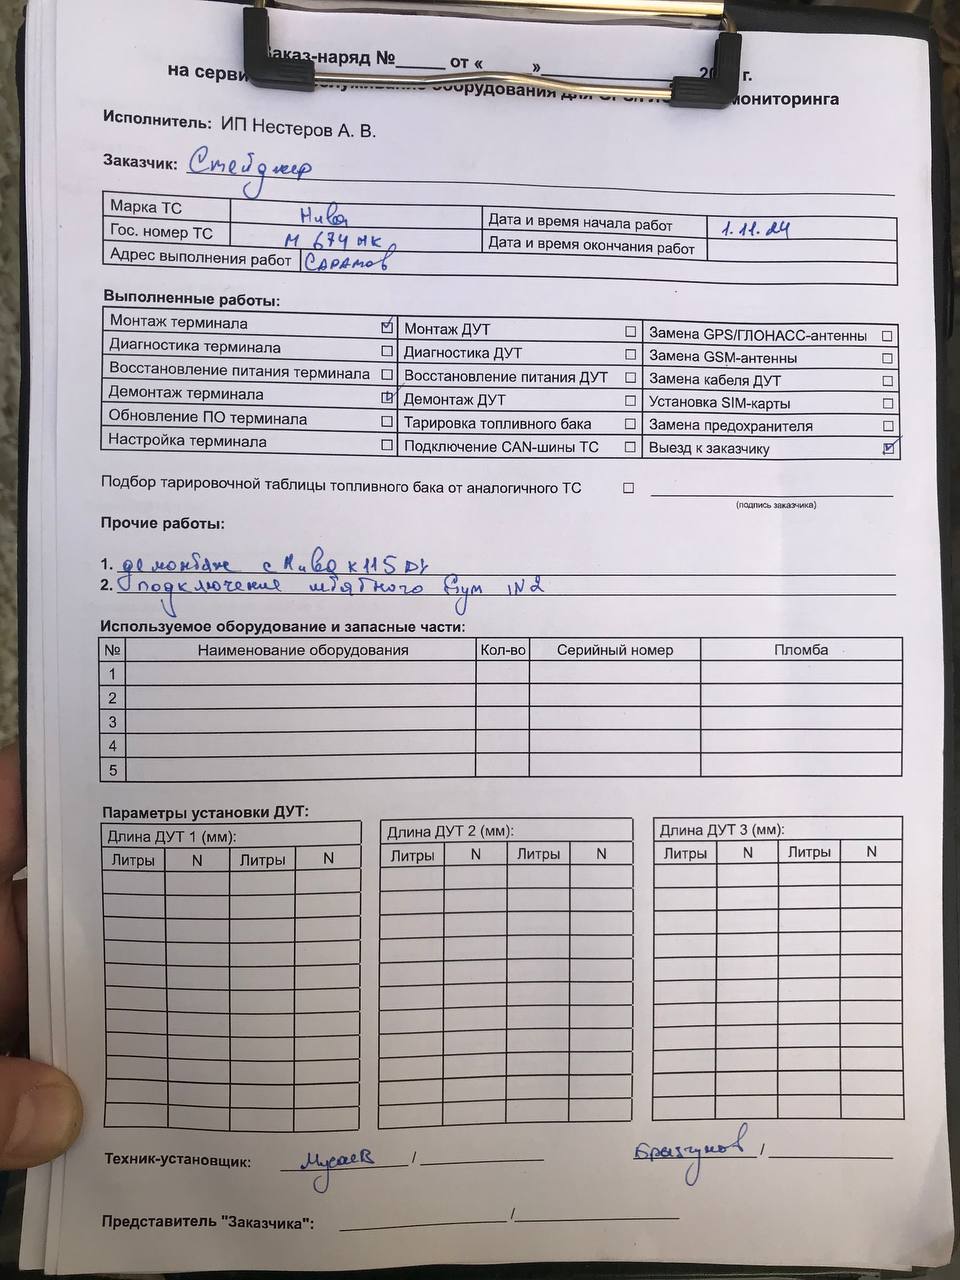 Заказ-наряд №_____ от «_____»_______________ 20 г.
на серви оборудования для мониторинга
Исполнитель: ИП Нестеров А. В.
Заказчик: Стейджер
Марка ТС Нива Дата и время начала работ 1.11.24
Гос. номер ТС М 674 НК Дата и время окончания работ
Адрес выполнения работ Саратов
Выполненные работы:
Монтаж терминала ☑ Монтаж ДУТ ☐ Замена GPS/ГЛОНАСС-антенны ☐
Диагностика терминала ☐ Диагностика ДУТ ☐ Замена GSM-антенны ☐
Восстановление питания терминала ☐ Восстановление питания ДУТ ☐ Замена кабеля ДУТ ☐
Демонтаж терминала ☑ Демонтаж ДУТ ☐ Установка SIM-карты ☐
Обновление ПО терминала ☐ Тарировка топливного бака ☐ Замена предохранителя ☐
Настройка терминала ☐ Подключение CAN-шины ТС ☐ Выезд к заказчику ☑
Подбор тарировочной таблицы топливного бака от аналогичного ТС ☐
(подпись заказчика)
Прочие работы:
1. демонтаж с Нива к115
2. подключение IN2
Используемое оборудование и запасные части:
№ Наименование оборудования Кол-во Серийный номер Пломба
1
2
3
4
5
Параметры установки ДУТ:
Длина ДУТ 1 (мм): Длина ДУТ 2 (мм): Длина ДУТ 3 (мм):
Литры N Литры N Литры N Литры N Литры N Литры N
Техник-установщик: Мусаев / Бразгунов /
Представитель "Заказчика": /